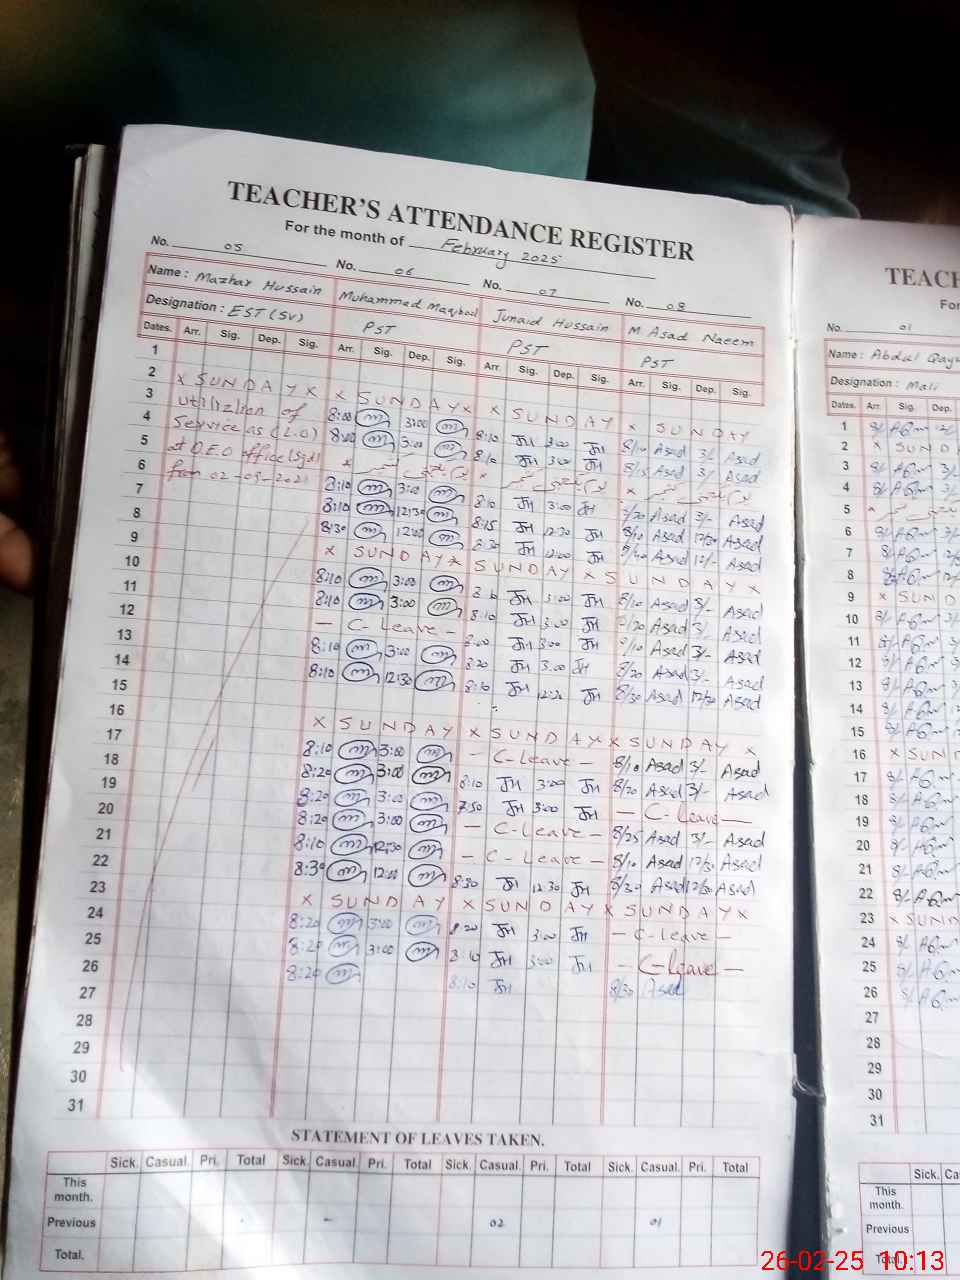 TEACHER'S ATTENDANCE REGISTER
For the month of February 2025
No. 05 No. 06 No. 07 No. 08
Name: Mazhar Hussain Muhammad Maqbool Junaid Hussain M Asad Naeem
Designation: EST (SV) PST PST PST
Dates. Arr. Sig. Dep. Sig. Arr. Sig. Dep. Sig. Arr. Sig. Dep. Sig. Arr. Sig. Dep. Sig.
1
2 x SUNDAY x x SUNDAY x x SUNDAY x SUNDAY
3 utiliztion of 8:00 3:00 8:10 JH 3:00 JH 8/10 Asad 3/- Asad
4 Service as (L.O) 8:00 3:00 8:10 JH 3:00 JH 8/15 Asad 3/- Asad
5 at D.E.O office (Sgd) x x x
6 from 02-09-2021 8:10 3:00 8:10 JH 3:00 JH 8/20 Asad 3/- Asad
7 8:10 12:30 8:15 JH 12:30 JH 8/10 Asad 12/30 Asad
8 8:30 12:00 8:30 JH 12:00 JH Asad 12/- Asad
9 x SUNDAY x SUNDAY x SUNDAY x
10 8:10 3:00 JH 3:00 JH 8/10 Asad 3/- Asad
11 8:10 3:00 8:10 JH 3:00 JH 8/20 Asad 3/- Asad
12 - C-Leave - 8:00 JH 3:00 JH 8/10 Asad 3/- Asad
13 8:10 3:00 8:20 JH 3:00 JH 8/20 Asad 3/- Asad
14 8:10 12:30 8:10 JH JH 8/30 Asad 12/30 Asad
15
16 x SUNDAY x SUNDAY x SUNDAY x
17 8:10 3:00 - C-Leave - 8/10 Asad 3/- Asad
18 8:20 3:00 8:10 JH 3:00 JH 8/20 Asad 3/- Asad
19 8:20 3:00 7:50 JH 3:00 JH - C-Leave -
20 8:20 3:00 - C-Leave - 8/25 Asad 3/- Asad
21 8:10 12:30 - C-Leave - 8/10 Asad 12/30 Asad
22 8:30 12:00 8:30 JH 12:30 JH 8/30 Asad 12/30 Asad
23 x SUNDAY x SUNDAY x SUNDAY x
24 8:20 3:00 8:20 JH 3:00 JH - C-Leave -
25 8:20 3:00 8:10 JH 3:00 JH - C-Leave -
26 8:20 8:10 JH 8/30 Asad
27
28
29
30
31
STATEMENT OF LEAVES TAKEN.
Sick. Casual. Pri. Total Sick. Casual. Pri. Total Sick. Casual. Pri. Total Sick. Casual. Pri. Total
This month.
Previous - 02 01
Total.
TEACH
For
No. 01
Name: Abdul Qayu
Designation: Mali
Dates. Arr. Sig. Dep.
1
2 x SUND
3
4
5
6
7
8
9 x SUND
10
11
12
13
14
15
16 x SUND
17
18
19
20
21
22
23 x SUND
24
25
26
27
28
29
30
31
Sick. Ca
This month.
Previous
Total.
26-02-25 10:13